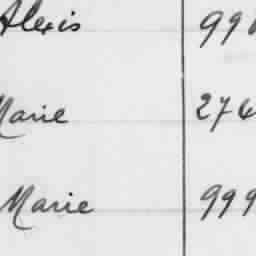 Alexis 99
Marie 276
Marie 999